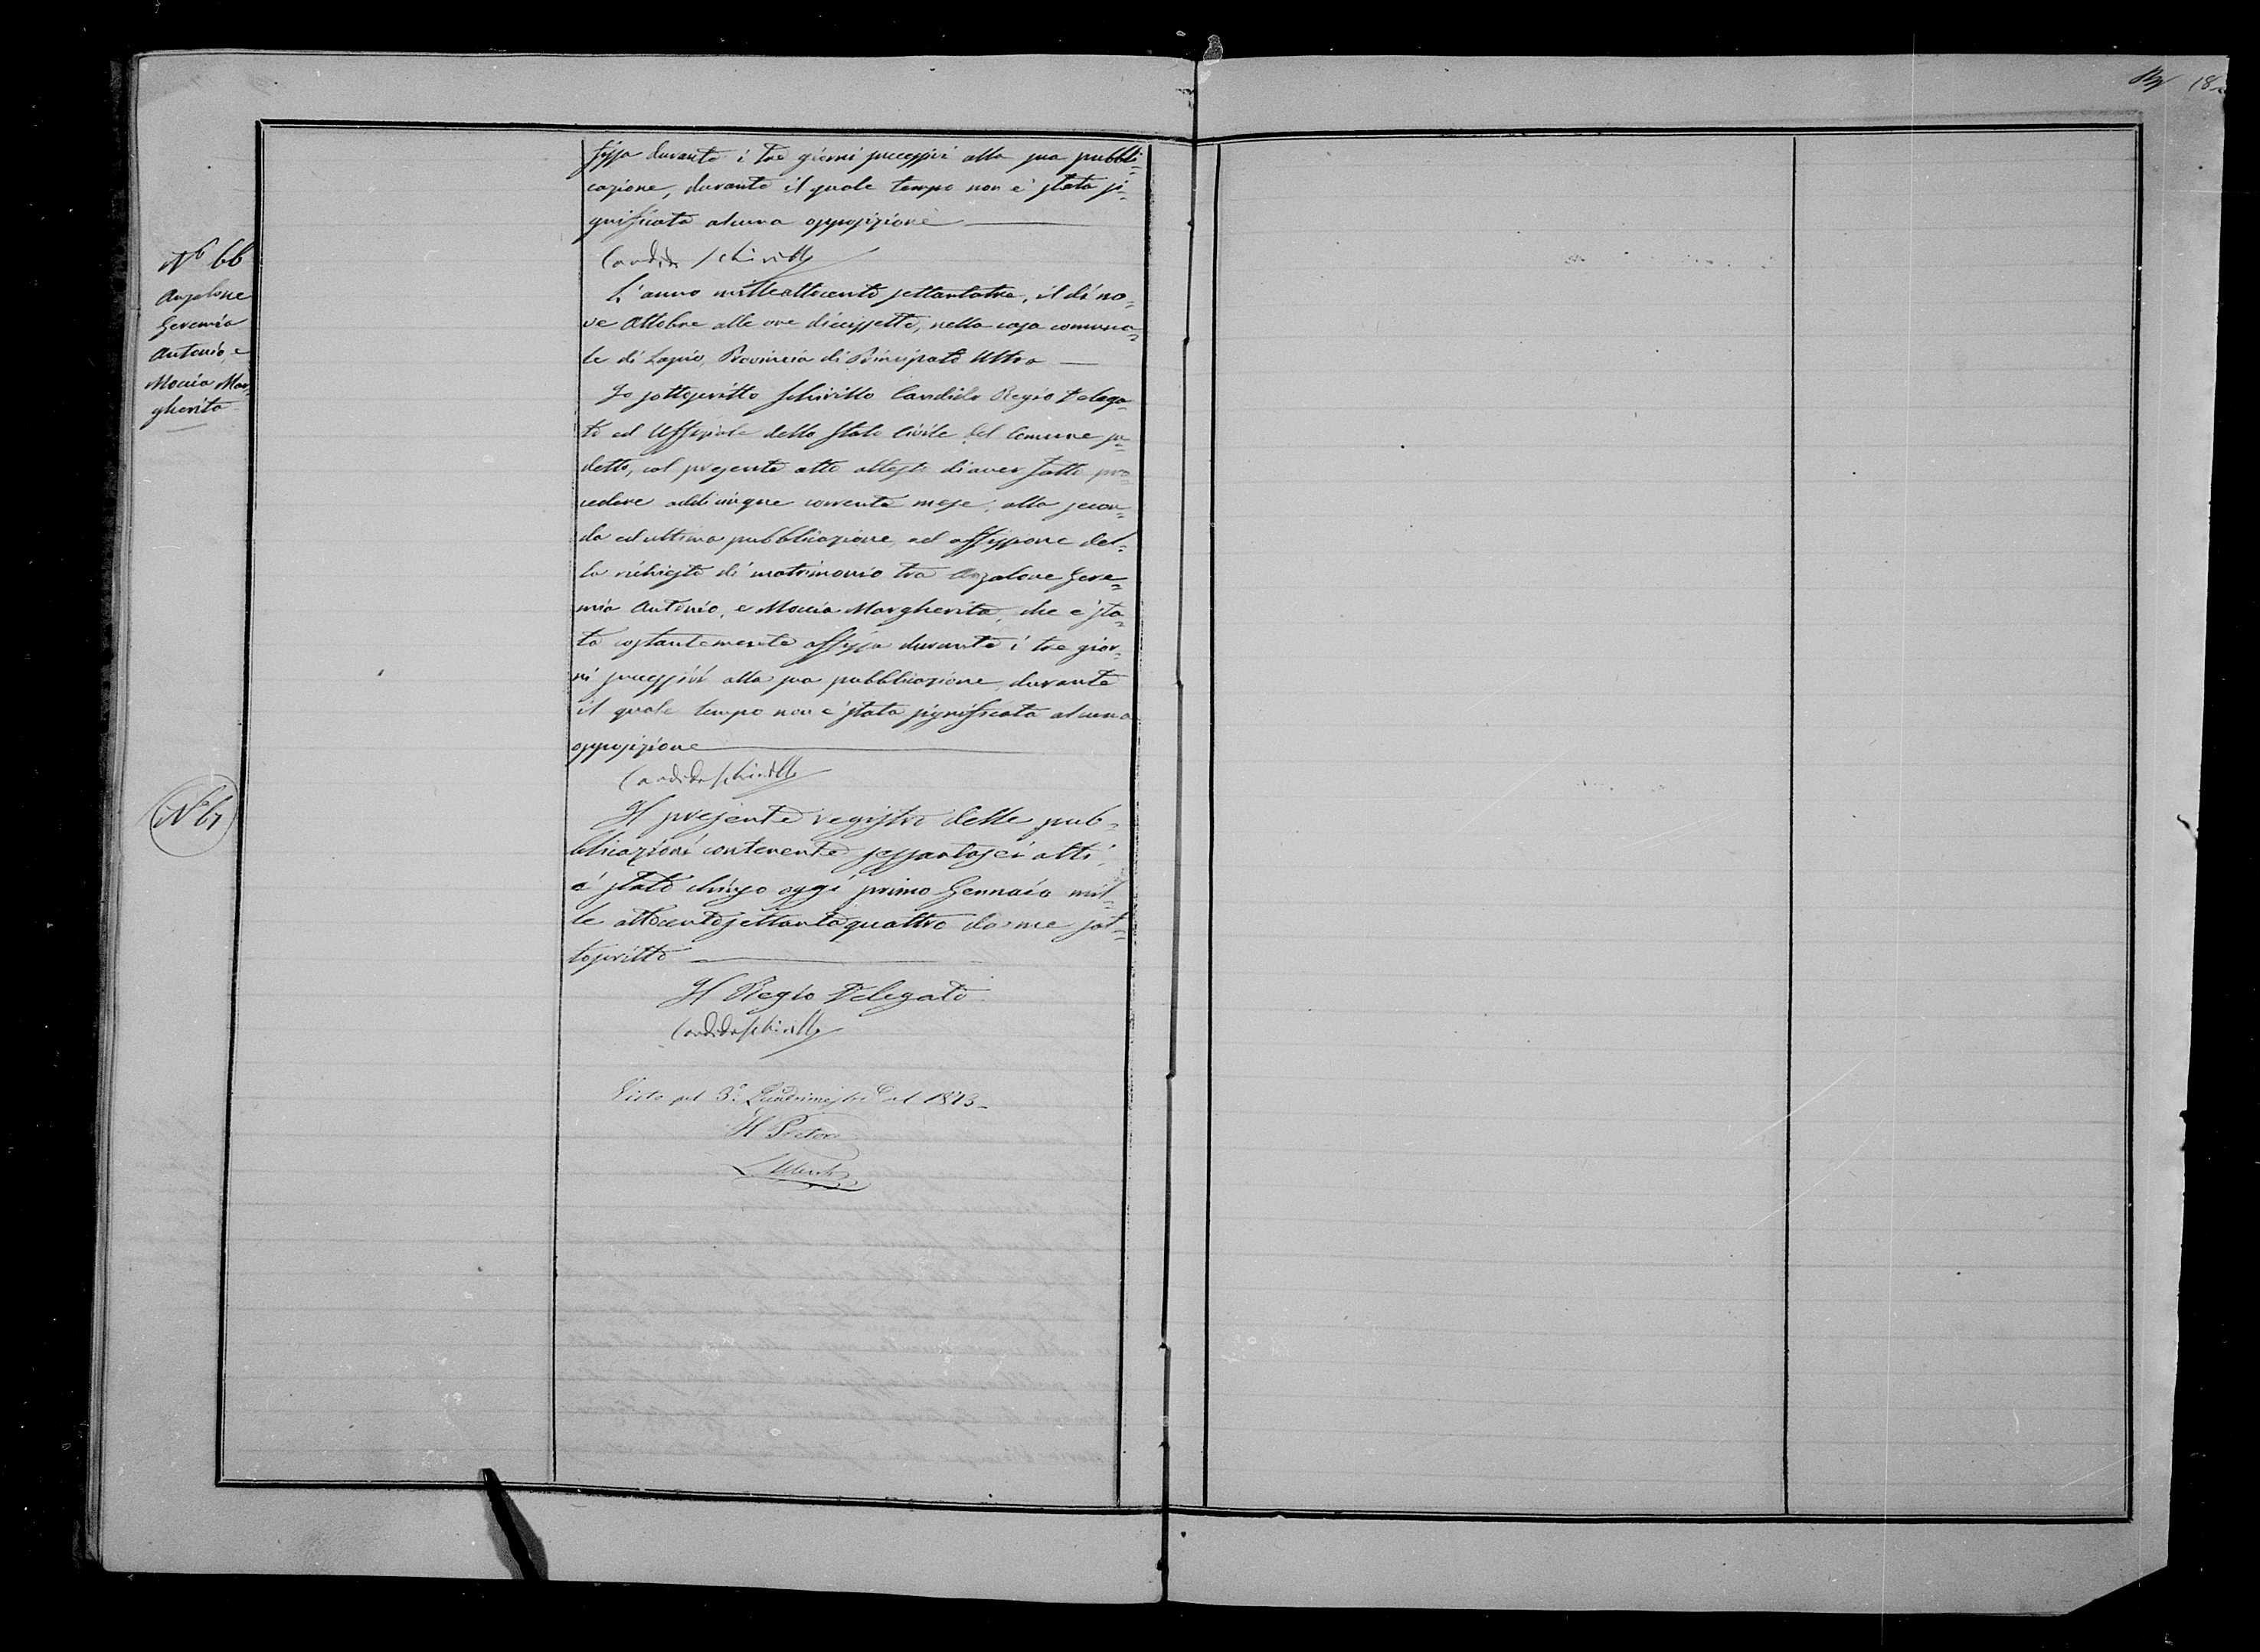 fissa durante i tre giorni successivi alla sua pubbli=
cazione, durante il quale tempo non è stata si=
gnificata alcuna opposizione
Candido Schirillo
N° 66
Anzalone
Geremia
Antonio, e
Moccia Mar=
gherita
L'anno milleottocento settantatre, il dì no=
ve Ottobre alle ore diciessette, nella casa comuna=
le di Lapio, Provincia di Principato Ultra
Io sottoscritto Schirillo Candido Regio Delega=
to ed Uffiziale dello Stato Civile del Comune su=
detto, col presente atto attesto di aver fatto pro=
cedere addì cinque corrente mese, alla secon=
da ed ultima pubblicazione, ed affissione del=
la richiesta di matrimonio tra Anzalone Gere=
mia Antonio, e Moccia Margherita, che è sta=
ta costantemente affissa durante i tre gior=
ni successivi alla sua pubblicazione, durante
il quale tempo non è stata significata alcuna
opposizione
Candido Schirillo
N° 67
Il presente registro delle pub=
blicazioni contenente sessantasei atti,
è stato chiuso oggi primo Gennaio mil=
le ottocentosettantaquattro da me sot=
toscritto
Il Regio Delegato
Candido Schirillo
Visto pel 3° Quadrimestre del 1873
Il Pretore
18